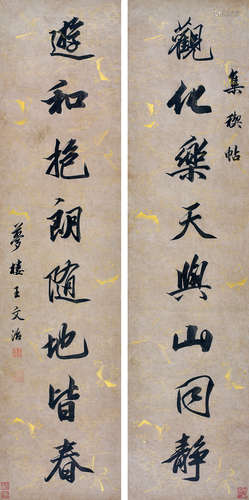 集禊帖
觀化樂天與山同靜
遊和抱朗隨地皆春
夢樓王文治